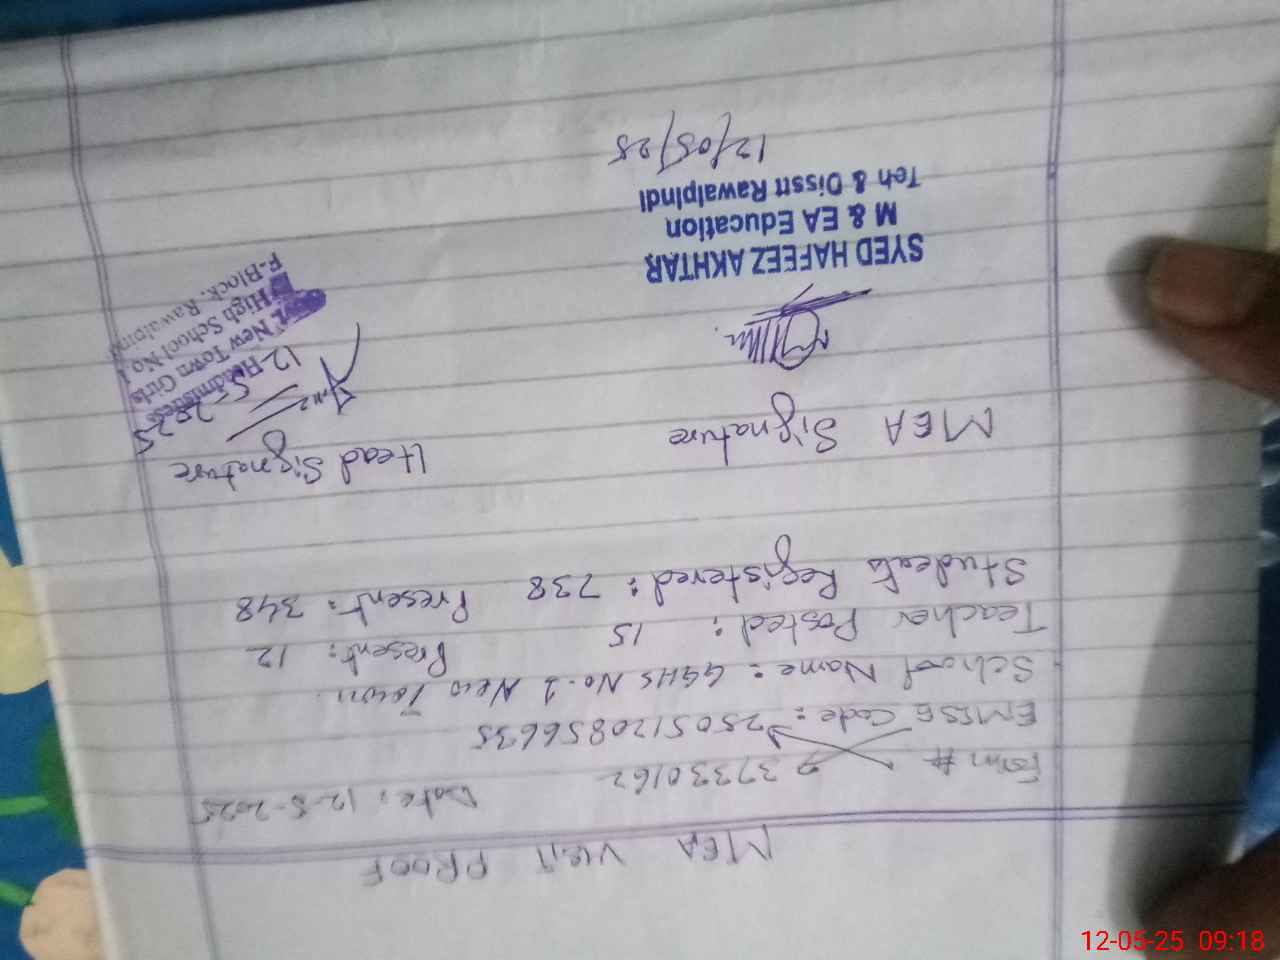 MEA Visit PROOF
Form # 37330162 Date: 12-5-2025
EMISE Code: 2505120856635
School Name: GGHS No. 1 New Town.
Teacher Posted: 15 Present: 12
Students Registered: 738 Present: 348
MEA Signature Head Signature
12-5-2025
Headmistress
New Town Girls
High School No.1
F-Block, Rawalpindi
SYED HAFEEZ AKHTAR
M & EA Education
Teh & Disstt Rawalpindi
12/05/25
12-05-25 09:18